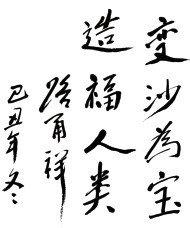 变沙为宝
造福人类
路甬祥
己丑年冬